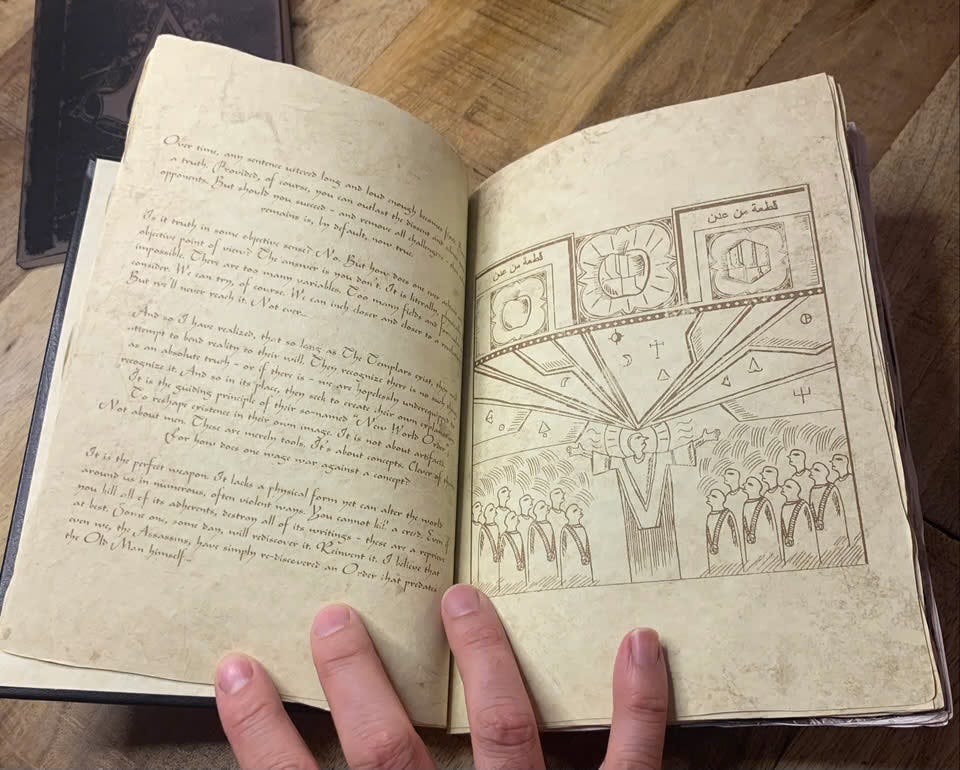 Over time, any sentence uttered long and loud enough becomes
a truth. Provided, of course, you can outlast the dissent and
opponents. But should you succeed - and remove all challengers -
remains is, by default, now true.
Is it truth in some objective sense? No. But how does one ever
objective point of view? The answer is you don't. It is literally,
impossible. There are too many variables. Too many fields and
consider. We can try, of course. We can inch closer and closer to a
But we'll never reach it. Not ever...
And so I have realized, that so long as The Templars exist, they
attempt to bend reality to their will. They recognize there is no such
as an absolute truth - or if there is - we are hopelessly
recognize it. And so in its place, they seek to create their own
It is the guiding principle of their so-named "New World Order"
To reshape existence in their own image. It is not about artifacts.
Not about men. These are merely tools. It's about concepts. Clever of
For how does one wage war against a concept?
It is the perfect weapon. It lacks a physical form yet can alter the world
around us in numerous, often violent ways. You cannot kill a creed. Even if
you kill all of its adherents, destroy all of its writings - these are a reprieve
at best. Some one, some day, will rediscover it. Reinvent it. I believe that
even we, the Assassins, have simply re-discovered an Order that predates
the Old Man himself...
قطعة من عدن
قطعة من عدن